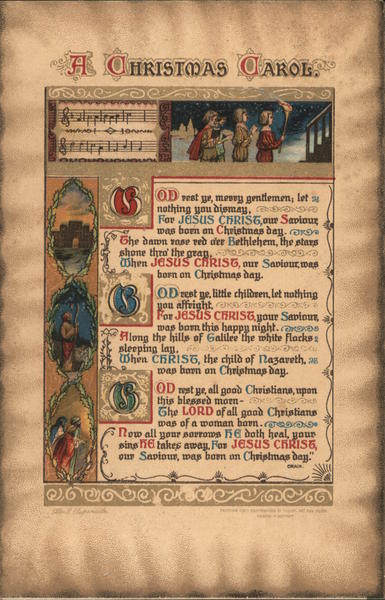 A CHRISTMAS CAROL.
GOD rest ye, merry gentlemen; let
nothing you dismay,
For JESUS CHRIST, our Saviour
was born on Christmas day.
The dawn rose red o'er Bethlehem, the stars
shone thro' the gray,
When JESUS CHRIST, our Saviour, was
born on Christmas day.
GOD rest ye, little children, let nothing
you affright,
For JESUS CHRIST, your Saviour,
was born this happy night.
Along the hills of Galilee the white flocks
sleeping lay,
When CHRIST, the child of Nazareth,
was born on Christmas day.
GOD rest ye, all good Christians, upon
this blessed morn-
The LORD of all good Christians
was of a woman born.
Now all your sorrows HE doth heal, your
sins HE takes away, For JESUS CHRIST,
our Saviour, was born on Christmas day."
CRAIK.